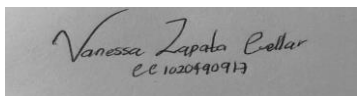 Vanessa Zapata Cuellar
cc 1020490917